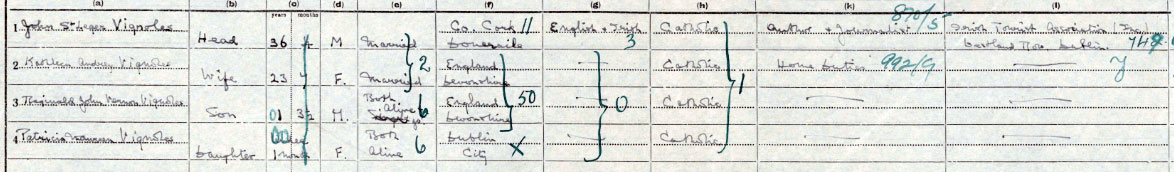 (a) (b) (c) (d) (e) (f) (g) (h) (k) (l)
years months
1 John St Leger Vignoles Head 36 4 M Married Co. Cork 11 English & Irish 3 Catholic Author & Journalist 870/5 Irish Tourist Association
2 Kathleen Audrey Vignoles Wife 23 7 F. Married 2 England Devonshire Catholic Home Duties 992/9 y
3 Reginald John Vignoles Son 01 3½ M. Both Alive 6 England Devonshire 50 0 Catholic 1
4 Patricia Maureen Vignoles Daughter 00 1 month F. Both Alive 6 Dublin City X Catholic